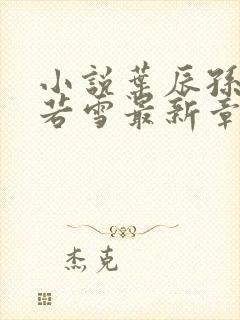 小說葉辰孫
若雪最新章
杰克